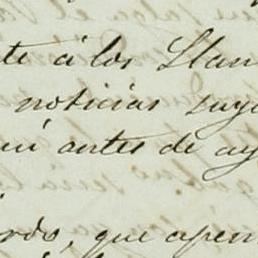 te á los Llan
noticias suya
uí antes de ay
ardo, que apen